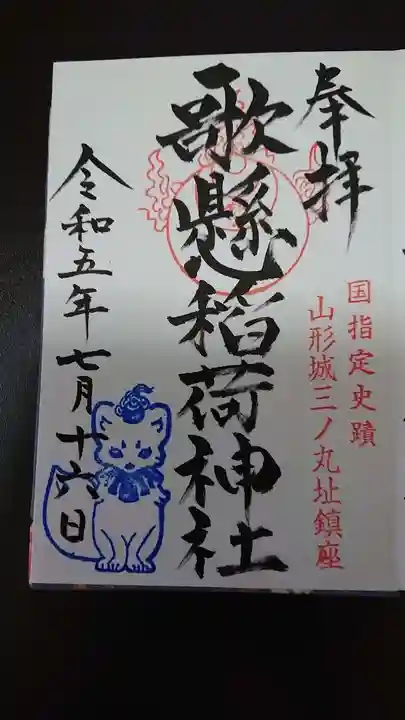 奉拝
国指定史蹟
山形城三ノ丸址鎮座
歌懸稲荷神社
令和五年七月十六日